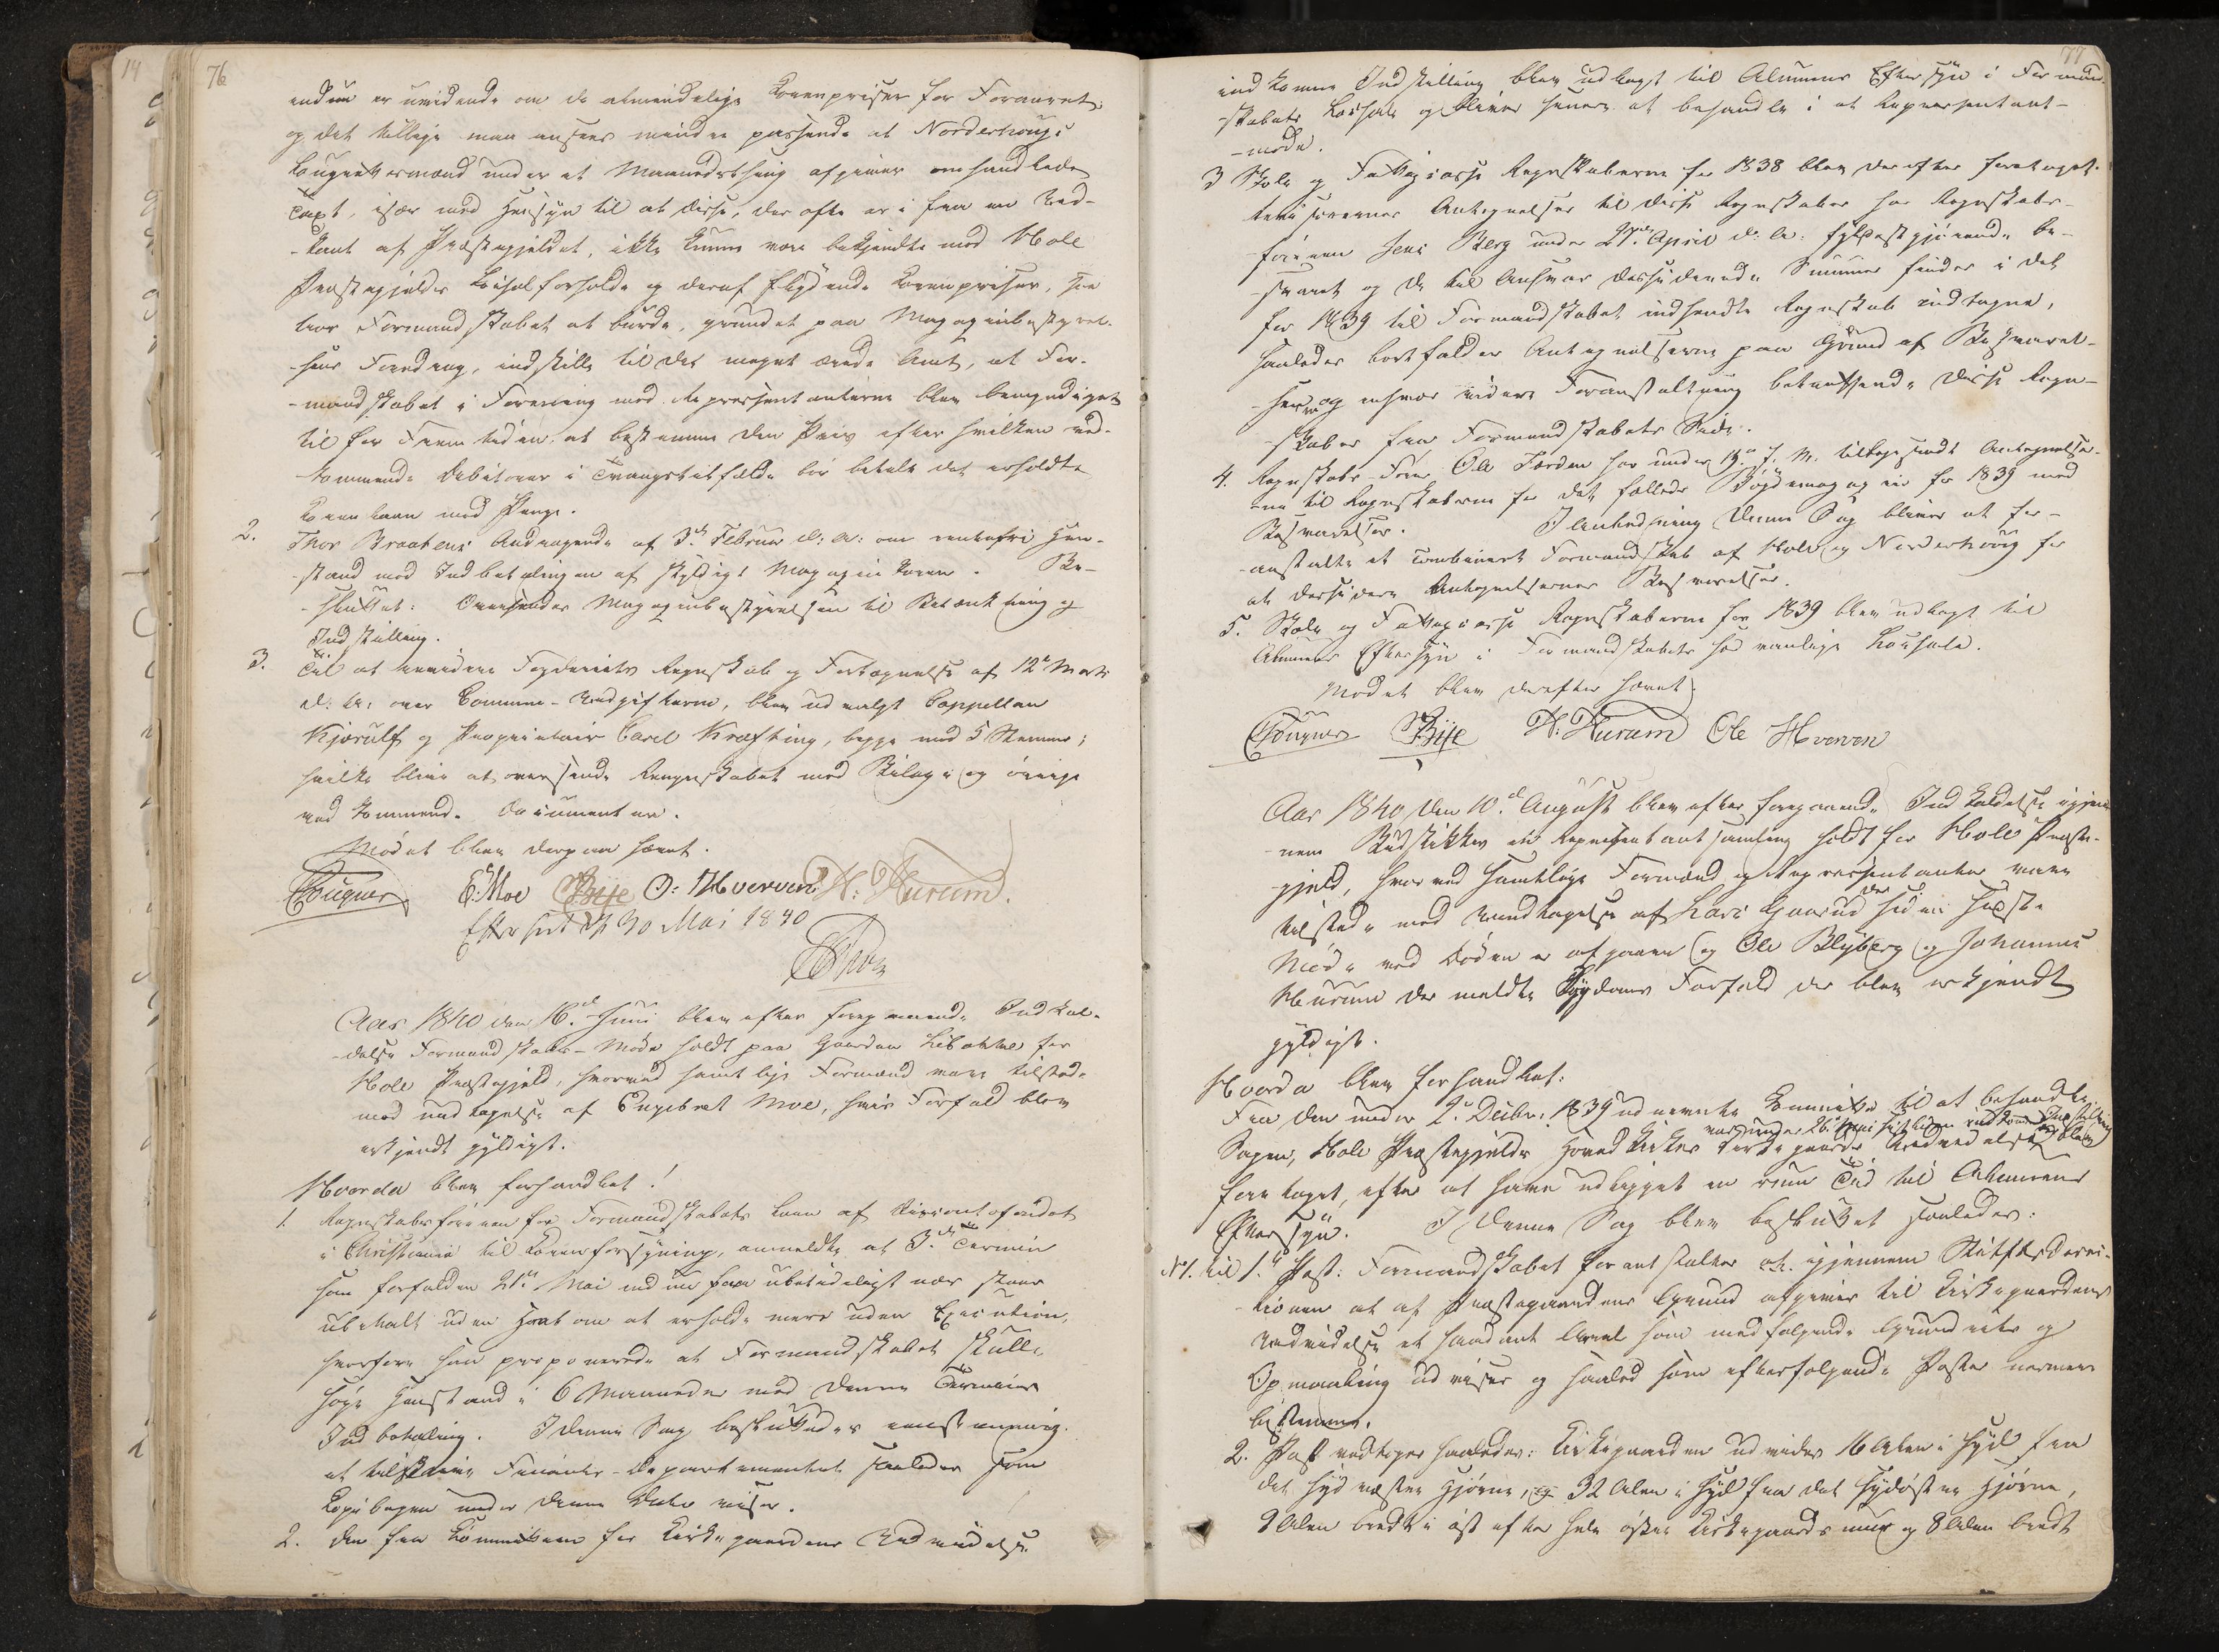 14
76
endnu er uvidende om de almindelige Kornpriser for Foraaret,
og det tillige maa ansees mindre passende at Norderhougs
Laugrettesmænd under et Maanedsthing afgiver omhandlede
Taxt, især med Hensyn til at disse, der ofte er i fra en Ud-
-kant af Præstegjeldet, ikke kunne være bekjendte med Hole
Præstegjelds Locialforholde og deraf flydende Kornpriser, saa
troer Formandskabet at burde, grundet paa Magazinbestyrel-
-sens Foredrag, indstille til det meget ærede Amt, at For-
-mandskabet i Forening med Repræsentanterne blev bemyndiget
til for Fremtiden at bestemme den Priis efter hvilken ved-
kommende Debitorer i Tvangstilfælde bør betale det erholdte
Kornlaan med Penge.
2. Thor Braatens Andragende af 3de Februar d: A: om rentefri Hen-
-stand med Indbetalingen af skyldigt Magazinkorn. Be-
-sluttet: Oversendes Magazinbestyrelsen til Betænkning og
Indstilling.
3. Til at revidere Fogderiets Regnskab og Fortegnelse af 12te Marts
d: A: over Commune-Udgifterne, blev udvalgt Cappellan
Kjerulf og Proprietair Carel Kræfting, begge med 5 Stemmer;
hvilke bliver at oversende Regnskabet med Bilage og øvrige
vedkommende Documenter.
Mødet blev derpaa hævet.
Fougner E. Moe Bije O: Hverven H: Hurum.
Efterseet d 30 Mai 1840
Aar 1840 den 16de Juni blev efter foregaaende Indkal-
-delse Formandskabs-Møde holdt paa Gaarden Libakke for
Hole Præstegjeld, hvorved samtlige Formænd vare tilstede
med undtagelse af Engebret Moe, hvis Forfald blev
erkjendt gyldigt.
Hvorda blev forhandlet!
1. Regnskabsføreren for Formandskabets Laan af
i Christiania til Kornforsyning, anmeldte at 3die Termin
som forfaldt 21de Mai endnu paa ubetydeligt nær staar
ubetalt uden Haab om at erholde mere uden Execution,
hvorfore han proponerede at Formandskabet skulle
søge Henstand i 6 Maaneder med denne Termins
Indbetaling. I denne Sag besluttedes eenstemmig
at tilskrive Finants-Departementet saaledes som
Copibogen under denne Dato viser.
2. Den fra Committeen for Kirkegaardens Udvidelse
77
indkomne Indstilling blev udlagt til Almeens Eftersyn i Formand-
-skabets Locale og bliver senere at behandle i et Repræsentant-
-møde.
3 Skole og Fattigcasse Regnskaberne for 1838 blev derefter foretaget.
Revisorernes Antegnelser til disse Regnskaber har Regnskabs-
føreren Jens Berg under 27de April d: A: fyldestgjørende be-
-svaret og de til Ansvar dessiderede Summer findes i det
for 1839 til Formandskabet indsendte Regnskab indtagne,
saaledes bortfalder Antegnelserne paa Grund af Besvarel-
-serne og enhver videre Foranstaltning betræffende disse Regn-
-skaber fra Formandskabets Side.
4. Regnskabs-Fører Ole Færden har under 13de f. M. tilbagesendt Antegnelser-
-ne til Regnskaberne for det fælleds Bygdemagazin for 1839 med
Besvarelser. I Anledning denne Sag bliver at for-
-anstalte et combineret Formandskab af Hole og Norderhoug for
at dessidere Antegnelsernes Besvarelser.
5. Skole og Fattigcasse Regnskaberne for 1839 blev udlagt til
Almeens Eftersyn i Formandskabets sædvanlige Locale.
Mødet blev derefter hævet
Fougner Bije H. Hurum Ole Hverven
Aar 1840 den 10de August blev efter foregaaende Indkaldelse igjen-
-nem Budstikken en Repræsentantsamling holdt for Hole Præste-
gjeld, hvorved samtlige Formænd og Repræsentanter vare
tilstede med Undtagelse af Lars Gaarud der siden sidste
Møde ved Døden er afgaaen og Ole Blyberg og Johannes
Hurum der meldte Sygdoms Forfald der blev erkjendt
gyldigt.
Hvorda blev forhandlet:
Fra den under 2de Decbr. 1839 udnævnte Committe til at behandle
Sagen, Hole Præstegjelds Hoved Kirkes Kirkegaards Udvidelse var under 26de Mai sidstleden indkom Indstilling der blev
foretaget, efter at have udligget en rum Tid til Almeens
Eftersyn. I denne Sag blev besluttet saaledes:
No 1. til 1ste Post: Formandskabet foranstalter at igjennem Stiftsdirec-
-tionen at af Præstegaardens Grund afgives til Kirkegaardens
Udvidelse et saadant Areal som medfølgende Grundrids og
Opmaaling udviser og saaled som efterfølgende Poster nermere
bestemme.
2. Post vedtages saaledes: Kirkegaarden udvides 16 Alen i Syd fra
det sydvestre Hjørne, og 32 Alen i Syd fra det sydøstre Hjørne,
8 Alen bredt i øst efter hele østre Kirkegaards muur og 8 Alen bredt